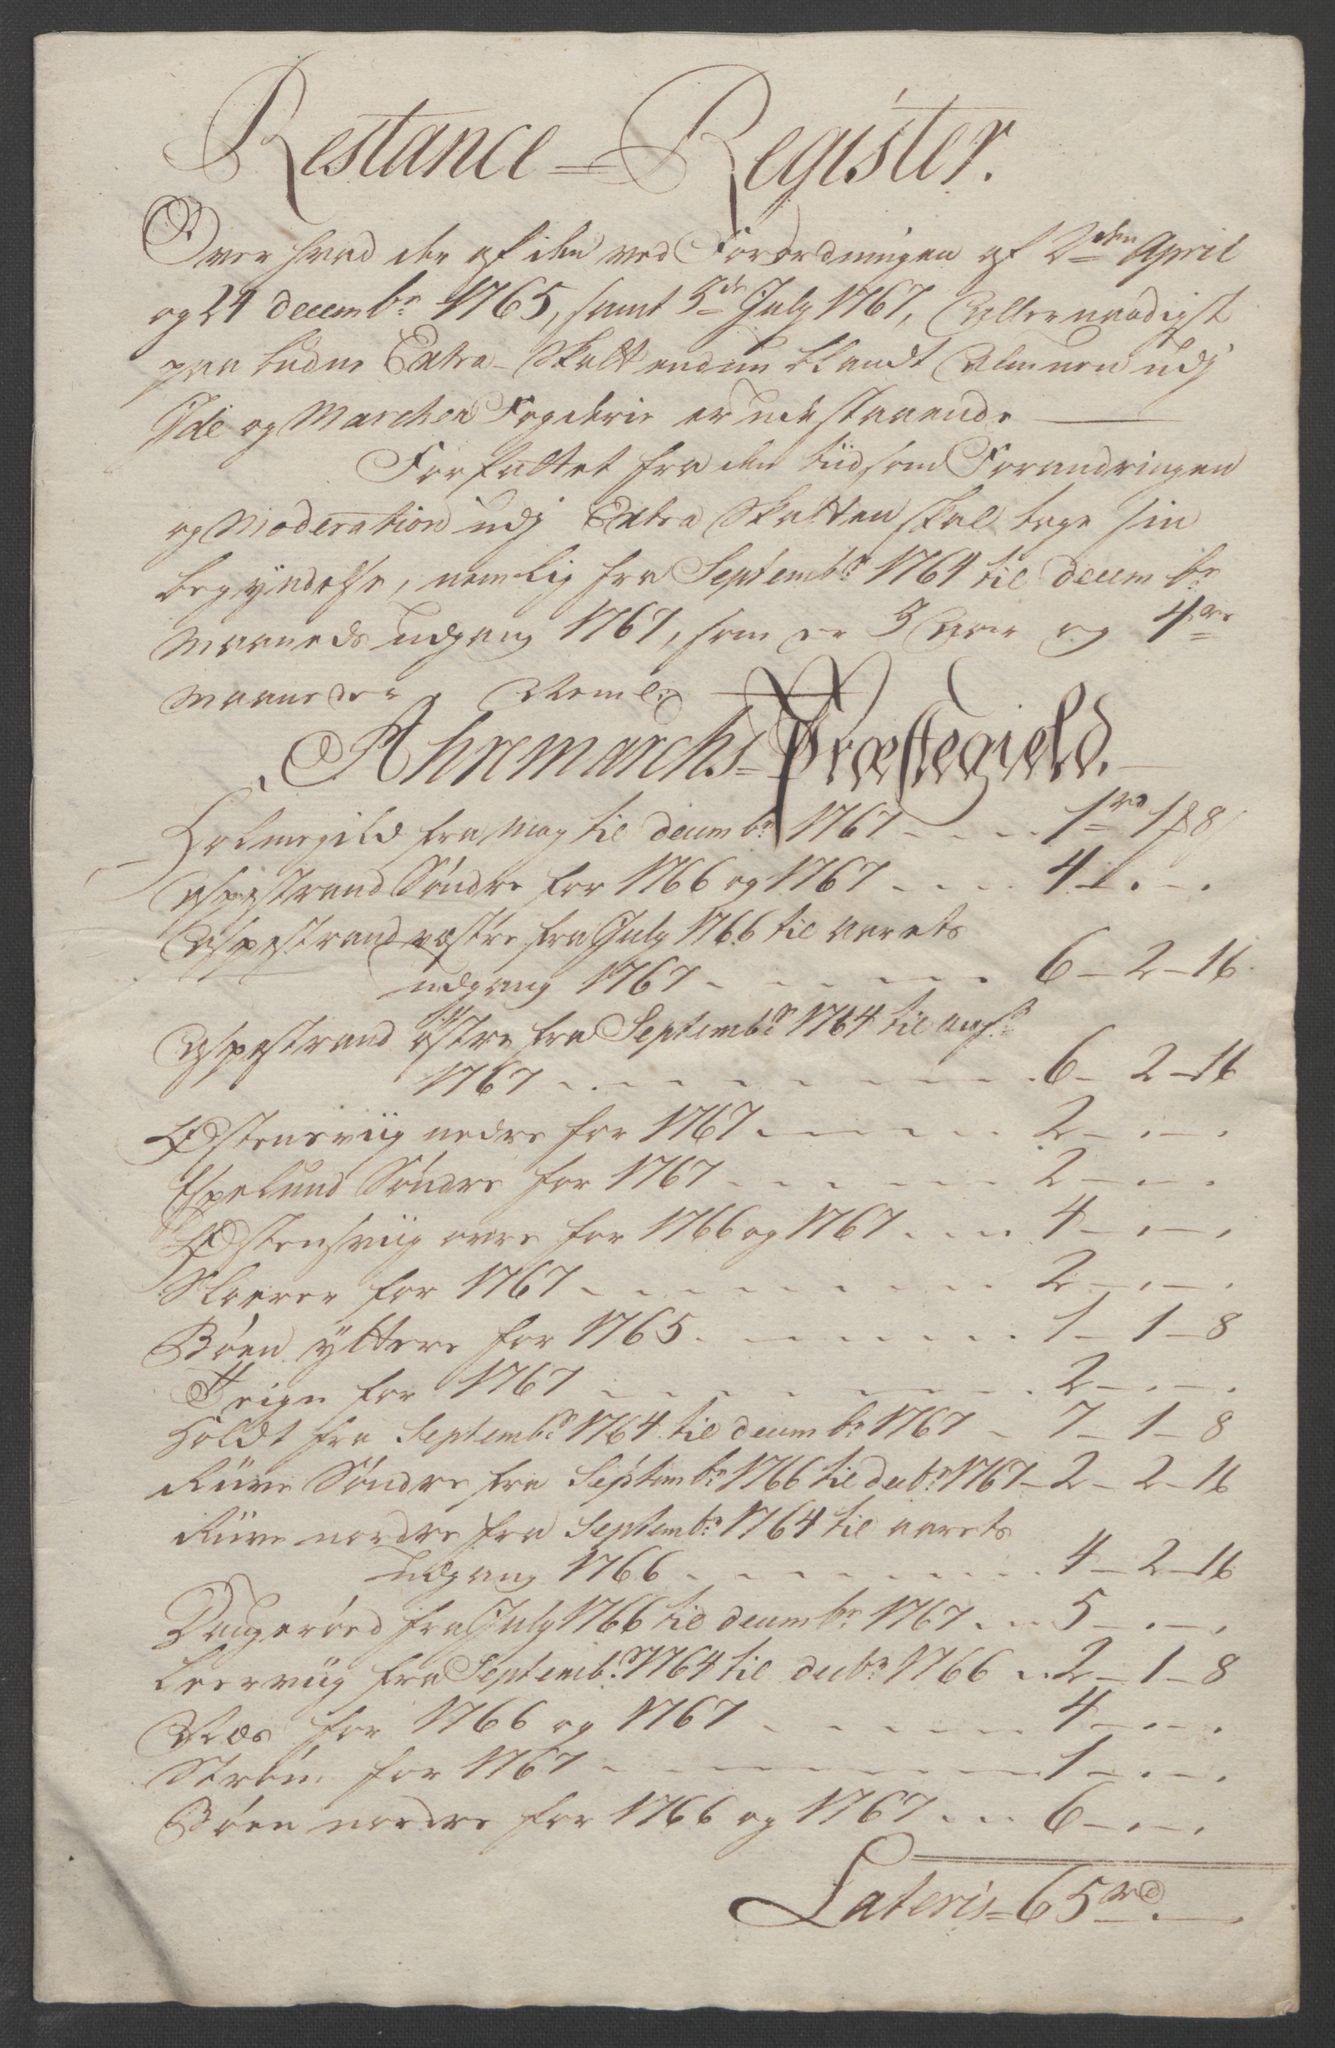 Restance = Register.
Over hvad der af den ved Forordningen af 2den April
og 24 decembr 1765, samt 3de July 1767, Allernaadigst
paabudne Extra-Skatt endnu blandt Almuen udj
Ide og Marchen Fogderie er udestaaende
Forfattet fra den tiid som Forandringen
og Moderation udj Extra Skatten skal tage sin
begyndelse, nemlig fra Septembr 1764 til decembr
Maaneds udgang 1767, som er 3 Aar og 4re
Maaneder, Neml:
Ahremarchs = Præstegield.
Holmegild fra May til decembr 1767 - - - - 1rd 1 f 8
Aspestrand Søndre for 1766 og 1767 - - - - 4 - . - .
Aspestrand væstre fra July 1766 til aarets
udgang 1767 - - - - - - 6 - 2 - 16
Aspestrand østre fra Septembr 1764 til
1767 - - - - - - - - - 6 - 2 - 16
Østensviig nedre for 1767 - - - - - 2 - . - .
Espelund Søndre for 1767 - - - - - - 2 - . - .
Østensviig øvre for 1766 og 1767 - - - 4 - . - .
for 1767 - - - - - - - - - 2 - . - .
Bøen yttere for 1765 - - - - - - - 1 - 1 - 8
for 1767 - - - - - - - - - 2 - . - .
Holdt fra Septembr 1764 til decembr 1767 - 7 - 1 - 8
Riive Søndre fra Septembr 1766 til decbr 1767 - 2 - 2 - 16
Riive nordre fra Septembr 1764 til aarets
udgang 1766 - - - - - - - 4 - 2 - 16
fra July 1766 til decembr 1767 - - 5 - . - .
Leerviig fra Septembr 1764 til decbr 1766 - - 2 - 1 - 8
Næs for 1766 og 1767 - - - - - - 4 - . - .
Strøm for 1767 - - - - - - - - - 1 - . - .
Bøen nordre for 1766 og 1767 - - - 6 - . - .
Lateris = 65rd - . -